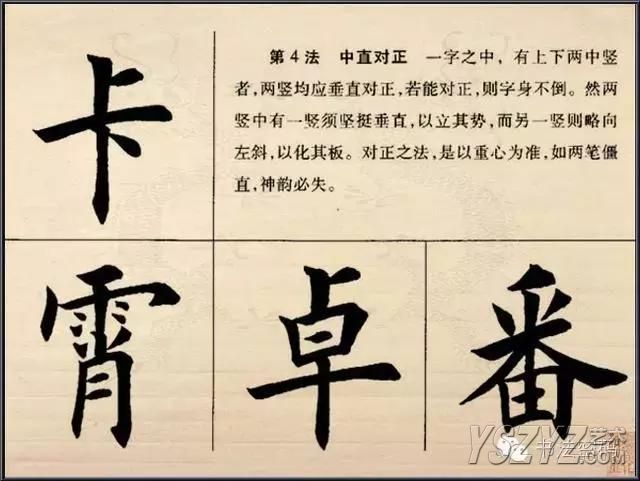 卡
第4法 中直对正 一字之中，有上下两中竖
者，两竖均应垂直对正，若能对正，则字身不倒。然两
竖中有一竖须坚挺垂直，以立其势，而另一竖则略向
左斜，以化其板。对正之法，是以重心为准，如两笔僵
直，神韵必失。
霄
卓
番
YSZYZ艺术
书法密码
.COM